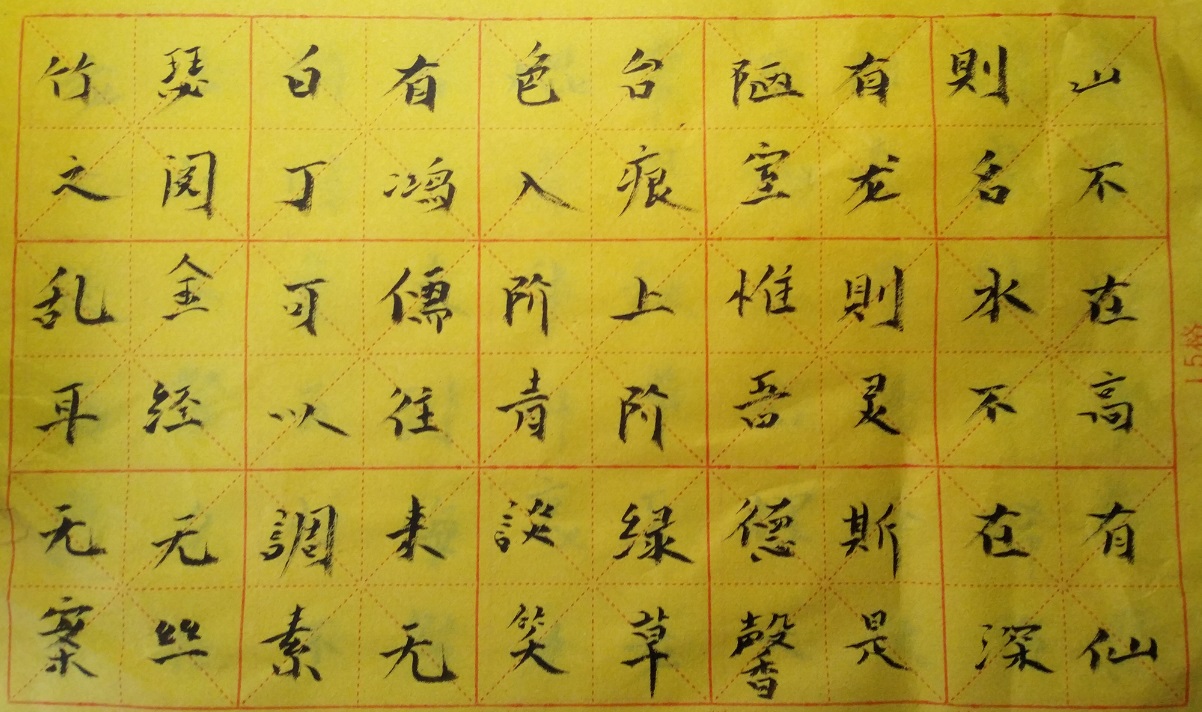 山不在高有仙
則名水不在深
有龙則灵斯是
陋室惟吾德馨
台痕上阶绿草
色入阶青談笑
有鸿儒往来无
白丁可以調素
瑟阅金经无丝
竹之乱耳无案